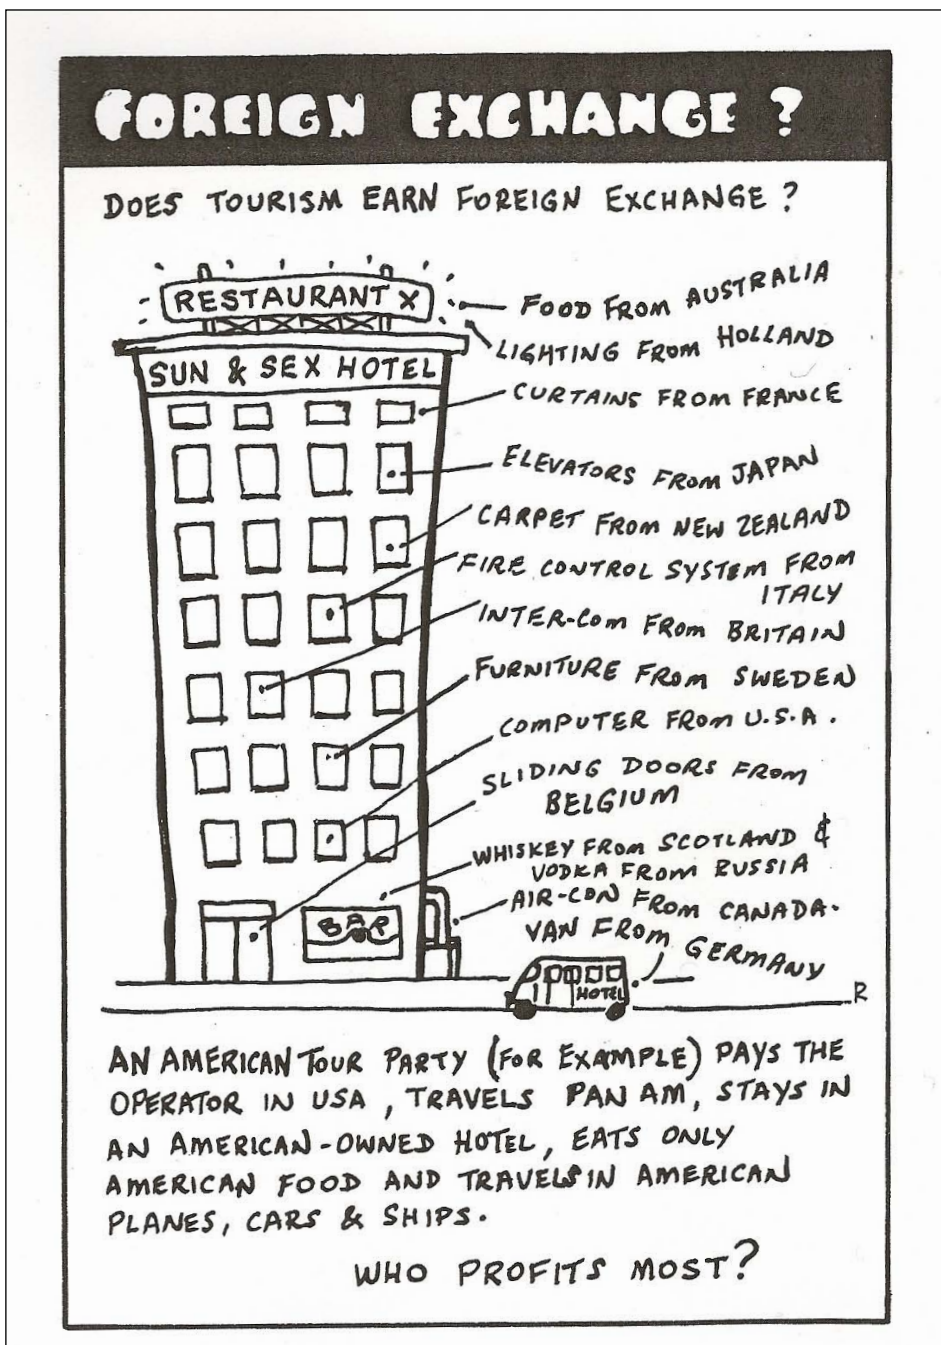 FOREIGN EXCHANGE ?
DOES TOURISM EARN FOREIGN EXCHANGE ?
RESTAURANT X
SUN & SEX HOTEL
FOOD FROM AUSTRALIA
LIGHTING FROM HOLLAND
CURTAINS FROM FRANCE
ELEVATORS FROM JAPAN
CARPET FROM NEW ZEALAND
FIRE CONTROL SYSTEM FROM
ITALY
INTER-COM FROM BRITAIN
FURNITURE FROM SWEDEN
COMPUTER FROM U.S.A.
SLIDING DOORS FROM
BELGIUM
WHISKEY FROM SCOTLAND &
VODKA FROM RUSSIA
AIR-CON FROM CANADA.
VAN FROM GERMANY
BAR
HOTEL
R
AN AMERICAN TOUR PARTY (FOR EXAMPLE) PAYS THE
OPERATOR IN USA, TRAVELS PAN AM, STAYS IN
AN AMERICAN-OWNED HOTEL, EATS ONLY
AMERICAN FOOD AND TRAVELS IN AMERICAN
PLANES, CARS & SHIPS.
WHO PROFITS MOST?